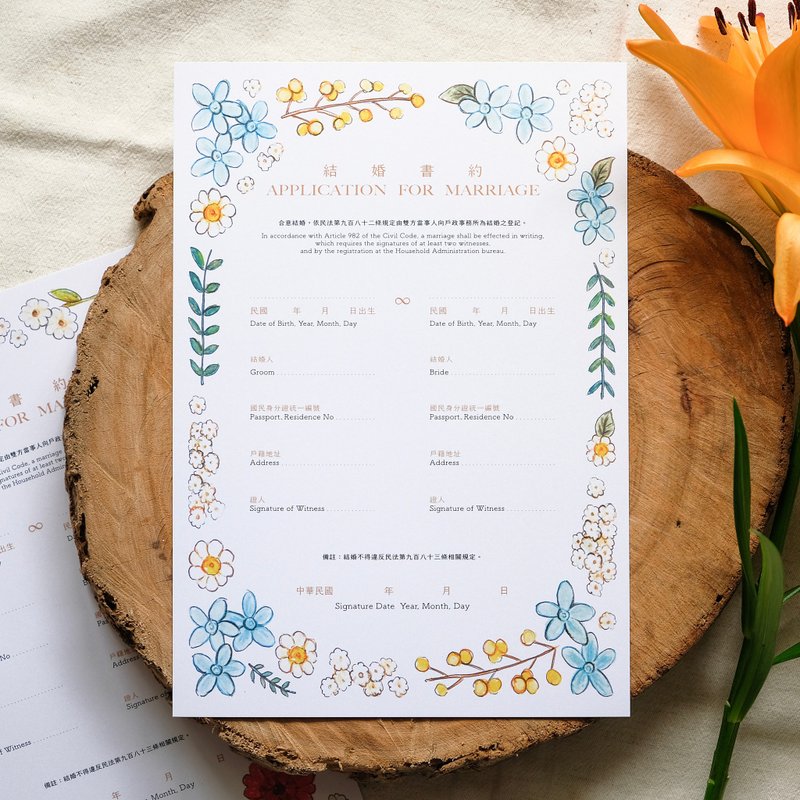 結婚書約
APPLICATION FOR MARRIAGE
合意結婚，依民法第九百八十二條規定由雙方當事人向戶政事務所為結婚之登記。
In accordance with Article 982 of the Civil Code, a marriage shall be effected in writing,
which requires the signatures of at least two witnesses,
and by the registration at the Household Administration bureau.
∞
民國 年 月 日出生 民國 年 月 日出生
Date of Birth, Year, Month, Day Date of Birth, Year, Month, Day
結婚人 結婚人
Groom Bride
國民身分證統一編號 國民身分證統一編號
Passport, Residence No Passport, Residence No
戶籍地址 戶籍地址
Address Address
證人 證人
Signature of Witness Signature of Witness
備註：結婚不得違反民法第九百八十三條相關規定。
中華民國 年 月 日
Signature Date Year, Month, Day
書約
FOR MA
定由雙方當事人向戶政
Civil Code, a marriage
signatures of at least two
the Household Admin
∞
日出生 民
Day Date
No Passport
戶籍地
Address
證人
Witness Signature o
備註：結婚不得違反民法第九百八十三條相關規定。
年 月 日
Signature Date Year, Month, Day